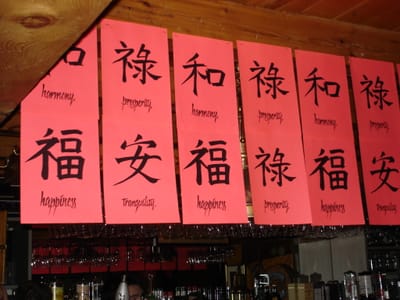 和 祿 和 祿 和 祿
harmony. prosperity. harmony. prosperity. harmony. prosperity.
福 安 福 祿 福 安
happiness Tranquility. happiness prosperity. happiness Tranquility.